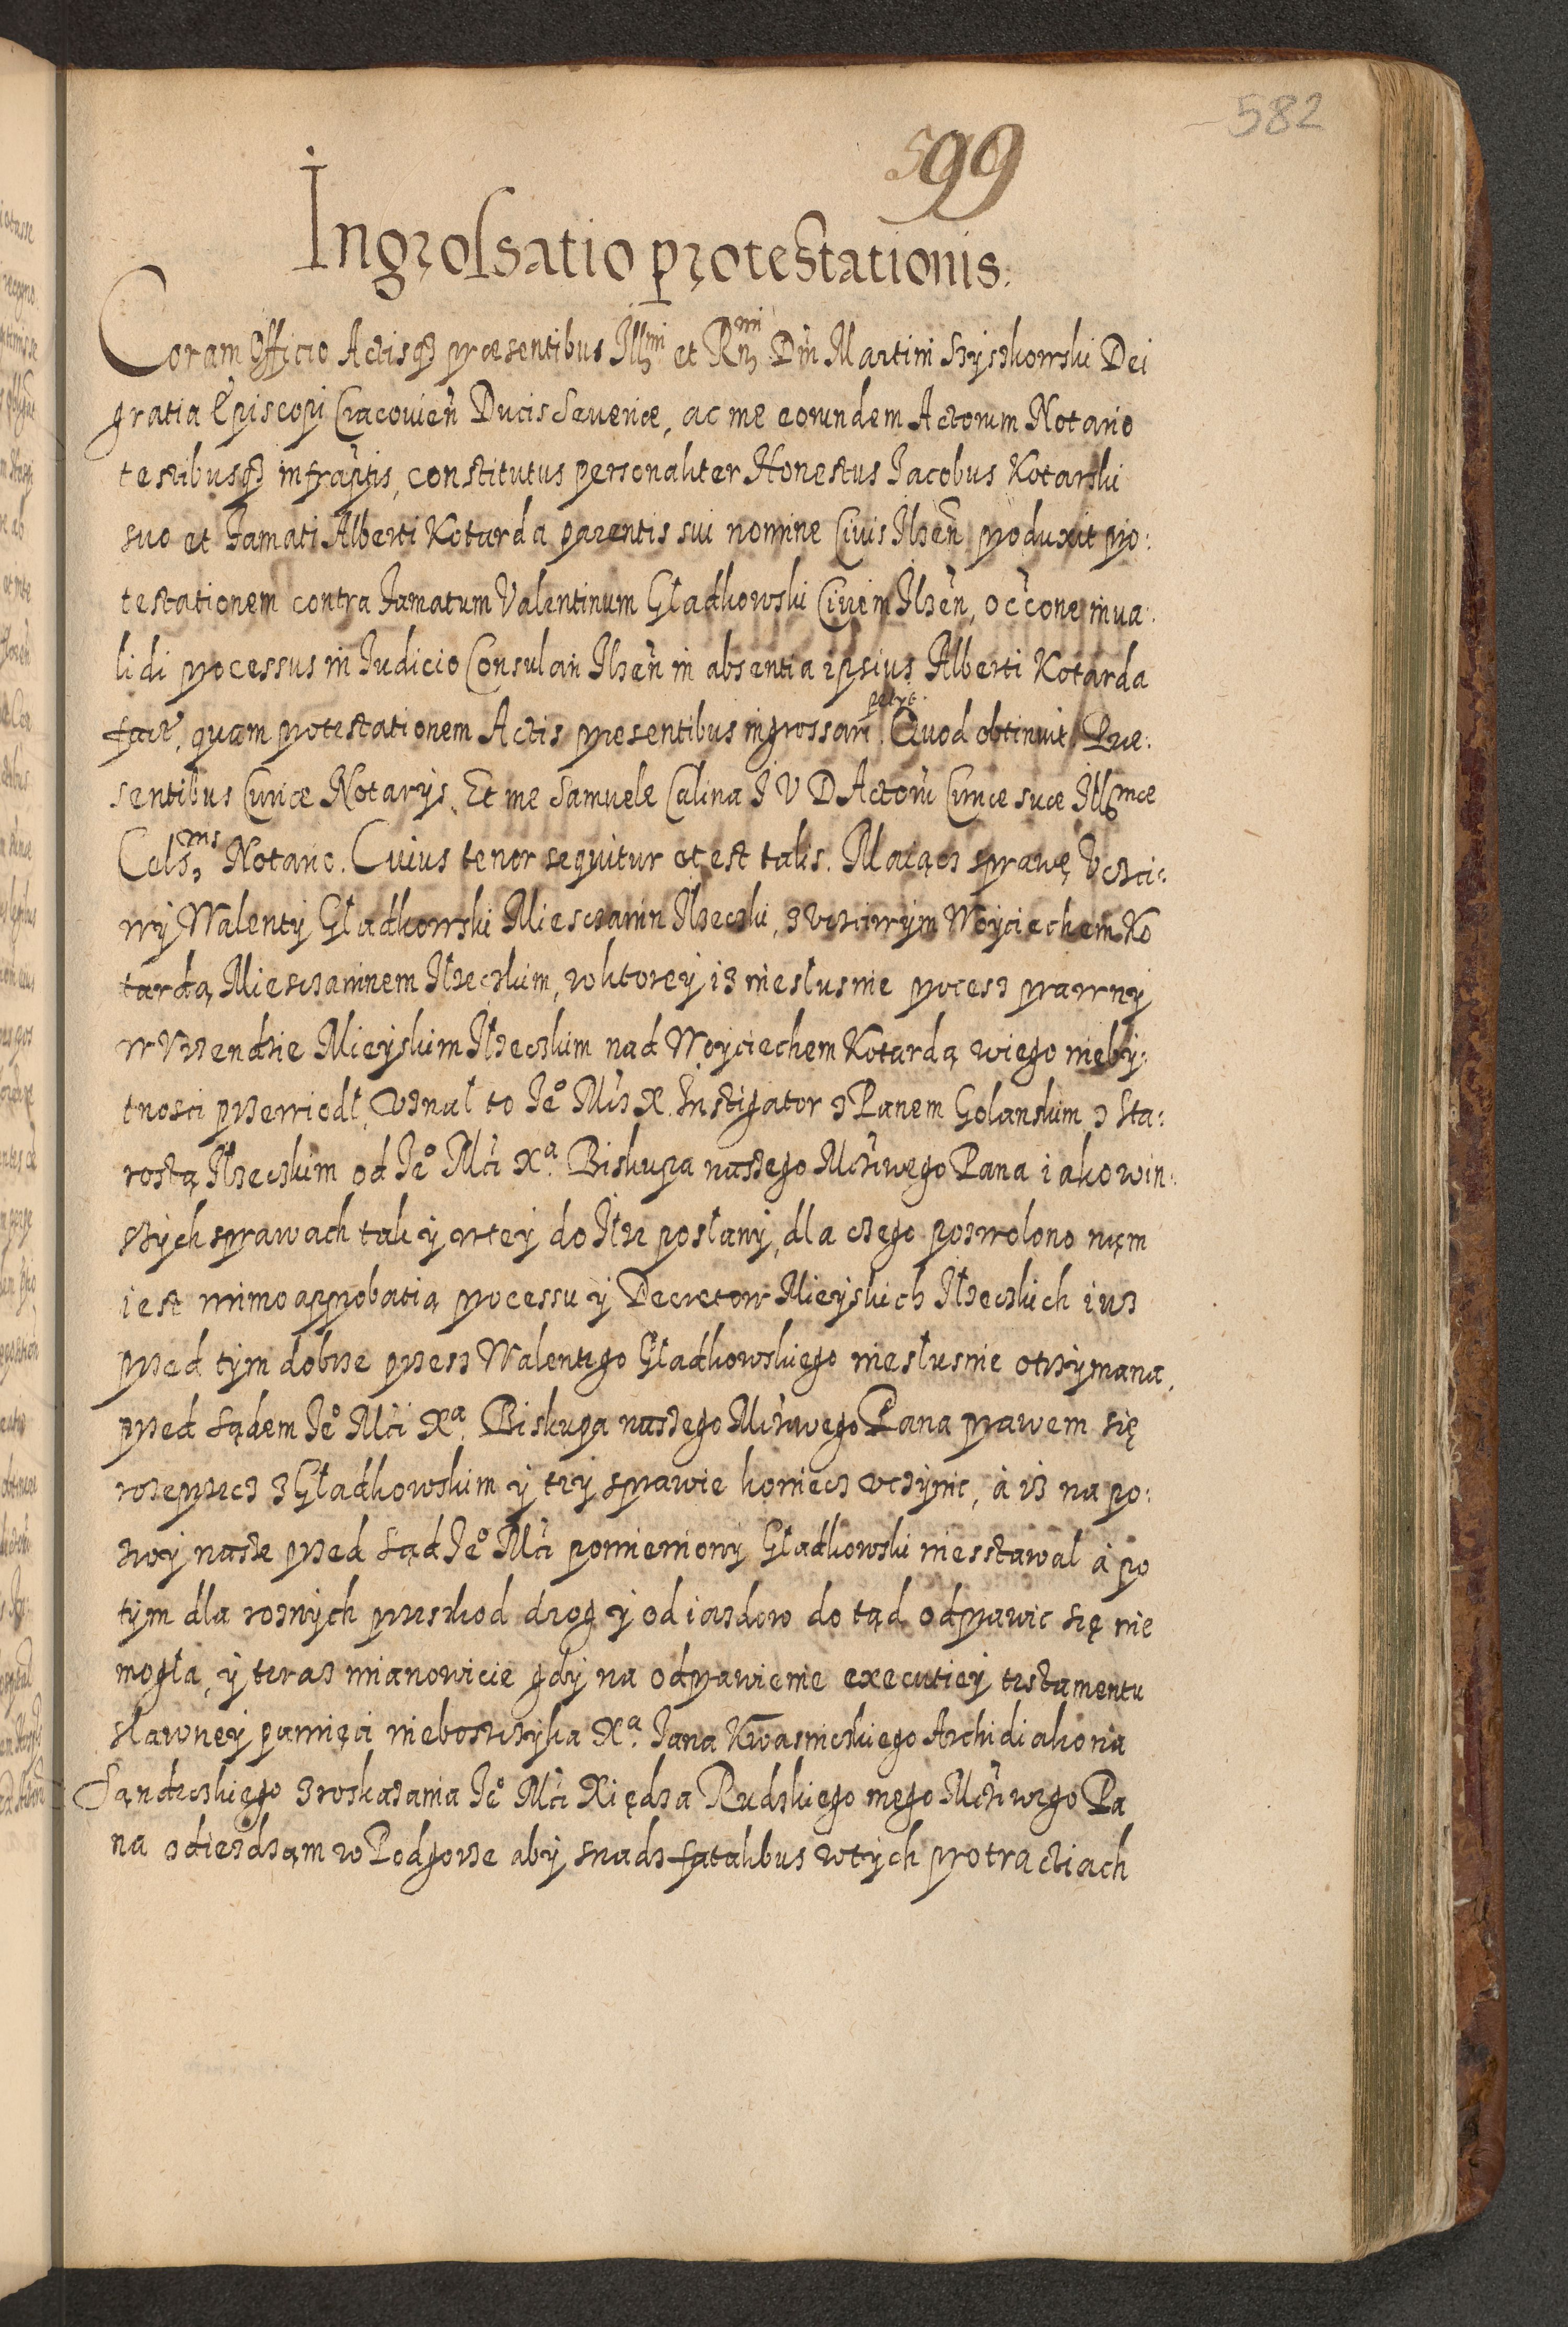 582
599
Ingrossatio protestationis.
Coram Officio Actisq3 præsentibus Illmi et Rmi Dni Martini Szyszkowski Dei
gratia Episcopi Cracovien Ducis Severiæ, ac me eorundem Actorum Notario
testibusq3 infraptis, constitutus personaliter Honestus Iacobus Kotarski
suo et Famati Alberti Kotarda parentis sui nomine Civis Ilzen produxit pro:
testationem contra Famatum Valentinum Gładkowski Civem Ilzen, occone inva:
lidi processus in Iudicio Consulari Ilzen in absentia ipsius Alberti Kotarda
fact, quam protestationem Actis præsentibus ingrossari petyt. Quod obtinuit. Præ:
sentibus Curiæ Notarys. Et me Samuele Calina I V D Actoru Curiæ suæ Illmæ
Cels: Notario. Cuius tenor sequitur et est talis. Maiącz sprawę Vczci:
wy Walenty Gładkowski Miesczanin Ilzeczki, z vczciwym Woyciechem Ko
tardą Miesczaninem Ilzeczkim, w ktorey iz niesłusnie process prawny
w Vrzendzie Mieyskim Ilzeczkim nad Woyciechem Kotardą w iego nieby:
tnosci przewiodł, Vznał to Ieº Mcz X. Instigator z Panem Golanskim, z Sta:
rostą Ilzeczkim od Ieº Mci Xª. Biskupa naszego Mciwego Pana iako w in:
szych sprawach tak y w tey do Ilze posłany, dla czego pozwolono nąm
iest mimo approbatią processu y Decretow Mieyskich Ilzeczkich iuz
przed tym dobrze przez Walentego Gładkowskiego niesłusnie otrzymana,
przed sądem Ieº Mci Xª. Biskupa naszego Mciwego Pana prawem się
rozeprzecz z Gładkowskim y tey sprawie koniecz vczynic, á iz na po:
zwy nasze przed sąd Ieº Mci pomieniony Gładkowski niesstawał á po
tym dla roznych przeszkod drog y odiazdow do tąd odprawic się nie
mogła, y teraz mianowicie gdy na odprawienie executiey testamentu
sławney pamięci nieboszczyka Xª. Iana Kwasnickiego Archidiakona
Sąndeczkiego z roskazania Ieº Mci Xiędza Rudzkiego mego Mciwego Pa
na odiezdząm w Podgorze aby snadz fatalibus w tych protractiach